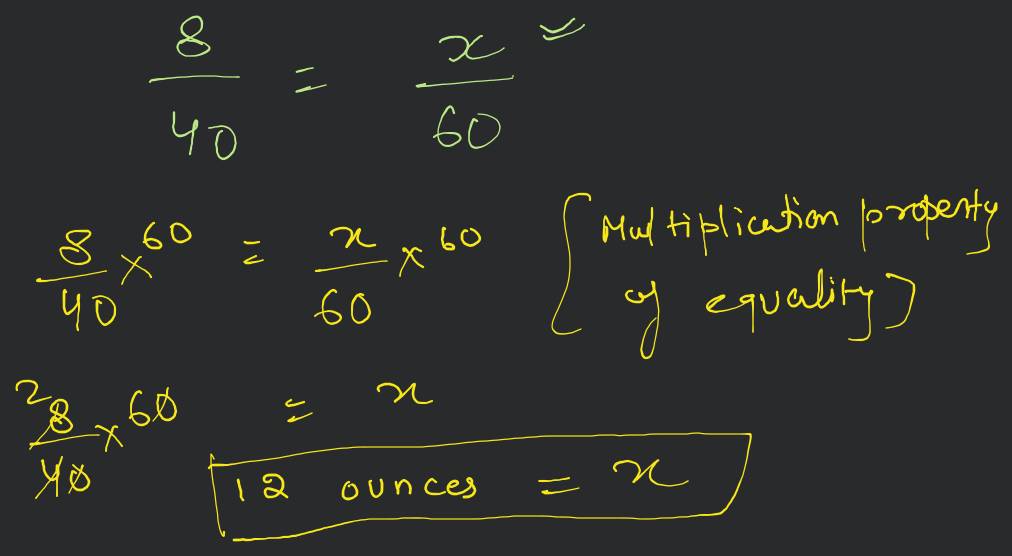 8/40 = x/60
8/40 × 60 = x/60 × 60 [Multiplication property
of equality]
2 8/40 × 60 = x
12 ounces = x